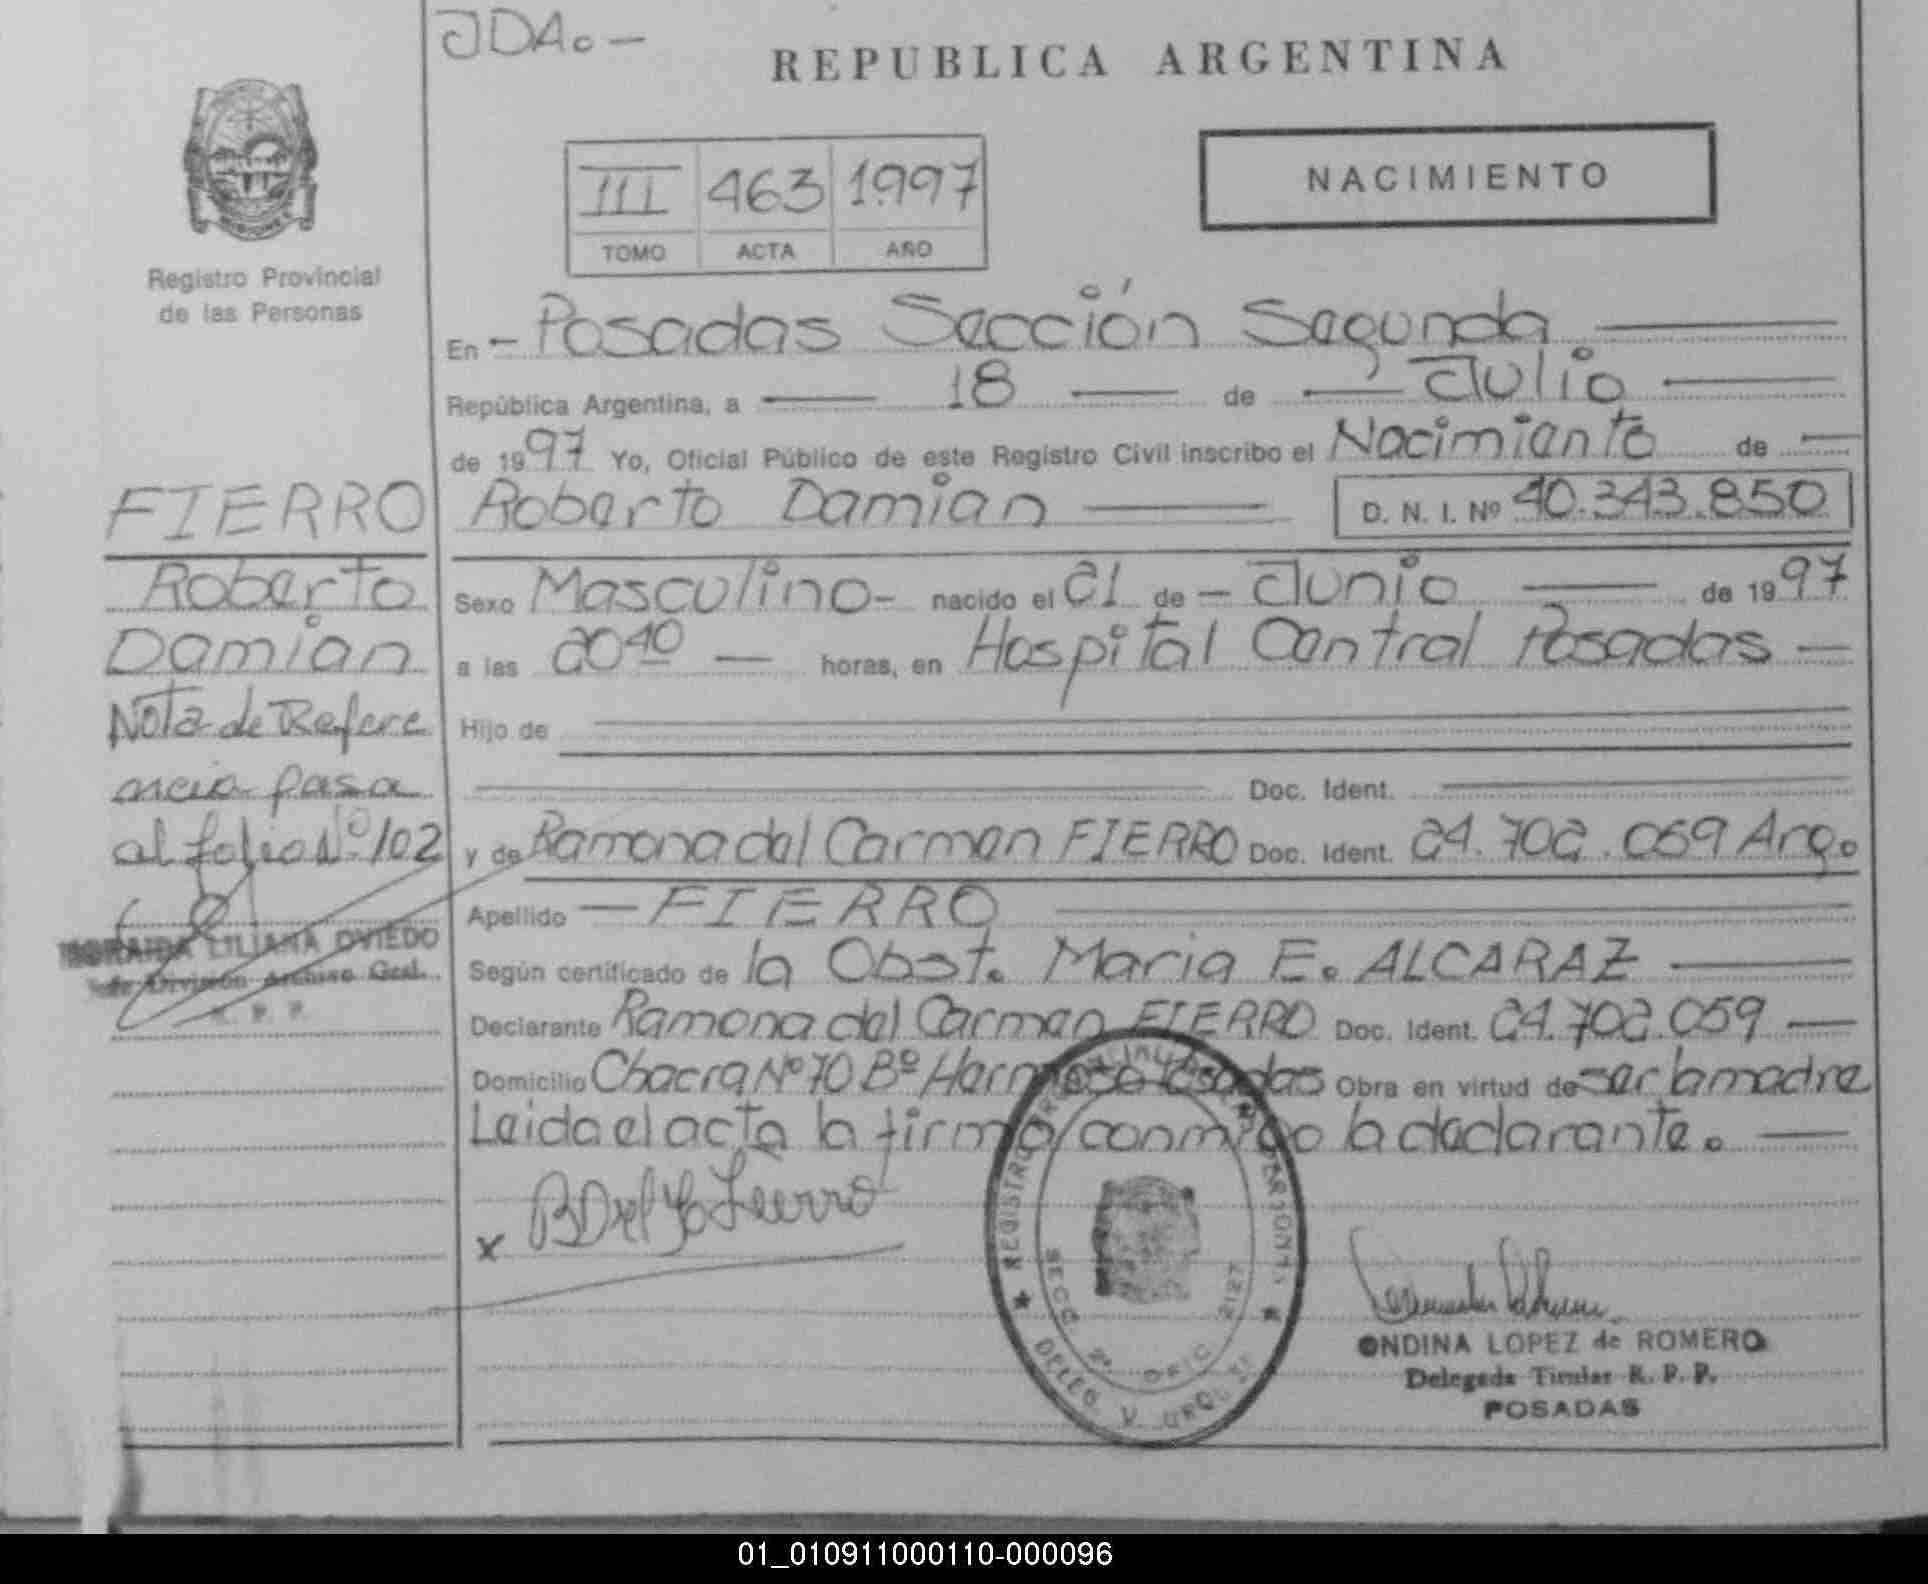 JDA.-
REPUBLICA ARGENTINA
NACIMIENTO
III 463 1997
TOMO ACTA AÑO
Registro Provincial
de las Personas
En - Posadas Sección Segunda
República Argentina, a 18 de Julio
de 1997 Yo, Oficial Público de este Registro Civil inscribo el Nacimiento de
Roberto Damian D. N. I. Nº 40.343.850
Sexo Masculino- nacido el 21 de - Junio de 1997
a las 20 40 - horas, en Hospital Central Posadas -
Hijo de
Doc. Ident.
y de Ramona del Carmen FIERRO Doc. Ident. 24.702.059 Arg.
Apellido - FIERRO
Según certificado de la Obst. Maria E. ALCARAZ
Declarante Ramona del Carmen FIERRO Doc. Ident. 24.702.059 -
Domicilio Chacra Nº 70 Bº Hermoso Posadas Obra en virtud de ser la madre
Leida el acta la firma conmigo la declarante. -
x Fierro
FIERRO
Roberto
Damian
Nota de Refere
ncia pasa
al folio Nº 102
LILIANA OVIEDO
Jefe División Archivo Gral.
R. P. P.
REGISTRO PROVINCIAL DE LAS PERSONAS
SECC. 2ª OFIC. 2127
DELEG. V. URQUIZA
ONDINA LOPEZ de ROMERO
Delegada Titular R. P. P.
POSADAS
01_010911000110-000096